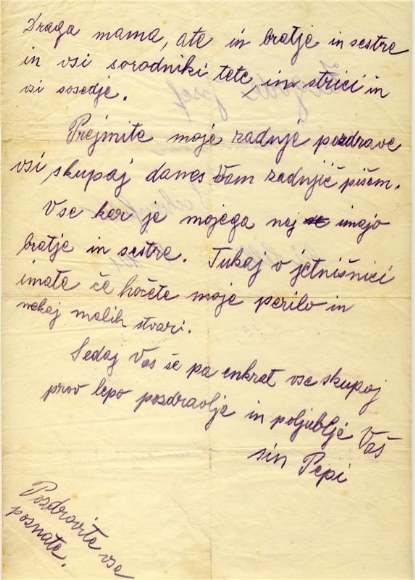 Draga mama, ate in bratje in sestre
in vsi sorodniki tete, in strici in
vsi sosedje.
Prejmite moje zadnje pozdrave
vsi skupaj danes Vam zadnjič pišem.
Vse kar je mojega naj imajo
bratje in sestre. Tukaj v jetnišnici
imate če hočete moje perilo in
nekaj malih stvari.
Sedaj Vas še pa enkrat vse skupaj
prov lepo pozdravlja in poljublja Vaš
sin Pepi
Pozdravite vse
poznate.